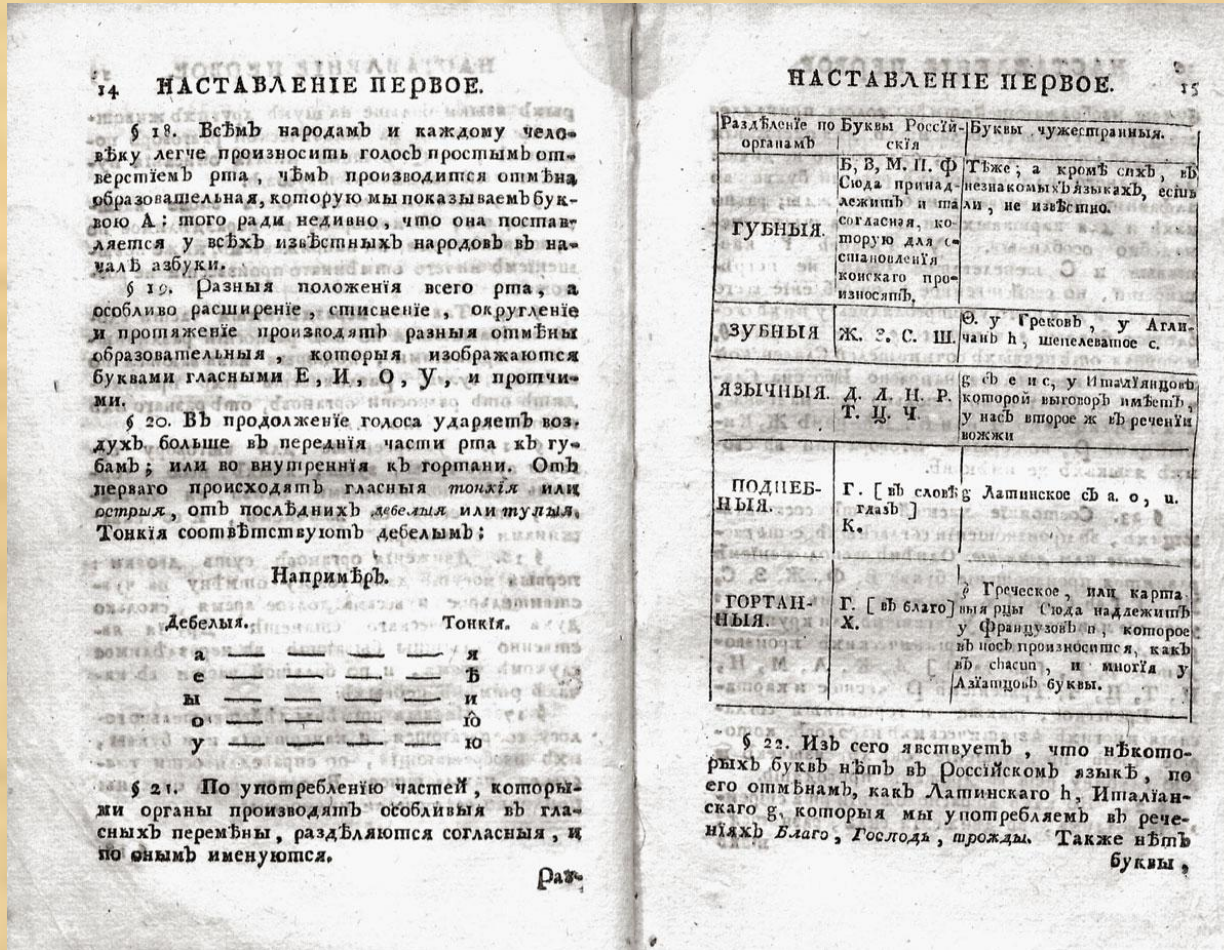 14 НАСТАВЛЕНІЕ ПЕРВОЕ.
§ 18. Всѣмъ народамъ и каждому чело-
вѣку легче произносить голосъ простымъ от-
верстїемъ рта, чѣмъ производится отмѣна
образовательная, которую мы показываемъ бук-
вою А: того ради недивно, что она постав-
ляется у всѣхъ извѣстныхъ народовъ въ на-
чалѣ азбуки.
§ 19. Разныя положенїя всего рта, а
особливо расширенїе, стисненїе, округленїе
и протяженїе производятъ разныя отмѣны
образовательныя, которыя изображаются
буквами гласными Е, И, О, У, и протчи-
ми.
§ 20. Въ продолженїе голоса ударяетъ воз-
духъ больше въ переднїя части рта къ гу-
бамъ; или во внутреннїя къ гортани. Отъ
перваго происходятъ гласныя тонкїя или
острыя, отъ послѣднихъ дебелыя или тупыя.
Тонкїя соотвѣтствуютъ дебелымъ:
Напримѣръ.
Дебелыя. Тонкїя.
а — — — — я
е — — — — ѣ
ы — — — — и
о — — — — іо
у — — — — ю
§ 21. По употребленїю частей, которы-
ми органы производятъ особливыя въ гла-
сныхъ перемѣны, раздѣляются согласныя, и
по онымъ именуются.
Раз-
НАСТАВЛЕНІЕ ПЕРВОЕ. 15
Раздѣленїе по органамъ
Буквы Россїй-
скїя
Буквы чужестранныя.
ГУБНЫЯ.
Б, В, М. П. Ф
Сюда принад-
лежитъ и та
согласная, ко-
торую для о-
становленїя
конскаго про-
износятъ,
Тѣже; а кромѣ сихъ, въ
незнакомыхъ языкахъ, есть
ли, не извѣстно.
ЗУБНЫЯ
Ж. З. С. Ш.
Ѳ. у Грековъ, у Агли-
чанъ h, шепелеватое с.
ЯЗЫЧНЫЯ.
Д. Л. Н. Р.
Т. Ц. Ч.
g съ е и с, у Италїянцовъ
которой выговоръ имѣетъ,
у насъ второе ж въ реченїи
вожжи
ПОДНЕБ-
НЫЯ.
Г. [ въ словѣ
глазъ ]
К.
g Латинское съ а. о, и.
ГОРТАН-
НЫЯ.
Г. [ въ благо ]
Х.
Греческое, или карта
выя рцы Сюда надлежитъ
у Французовъ n, которое
въ носъ произносится, какъ
въ chacun, и многїя у
Азїатцовъ буквы.
§ 22. Изъ сего явствуетъ, что нѣкото-
рыхъ буквъ нѣтъ въ Россїйскомъ языкѣ, по
его отмѣнамъ, какъ Латинскаго h, Италїан-
скаго g, которыя мы употребляемъ въ рече-
нїяхъ Благо, Господь, трожды. Также нѣтъ
буквы,